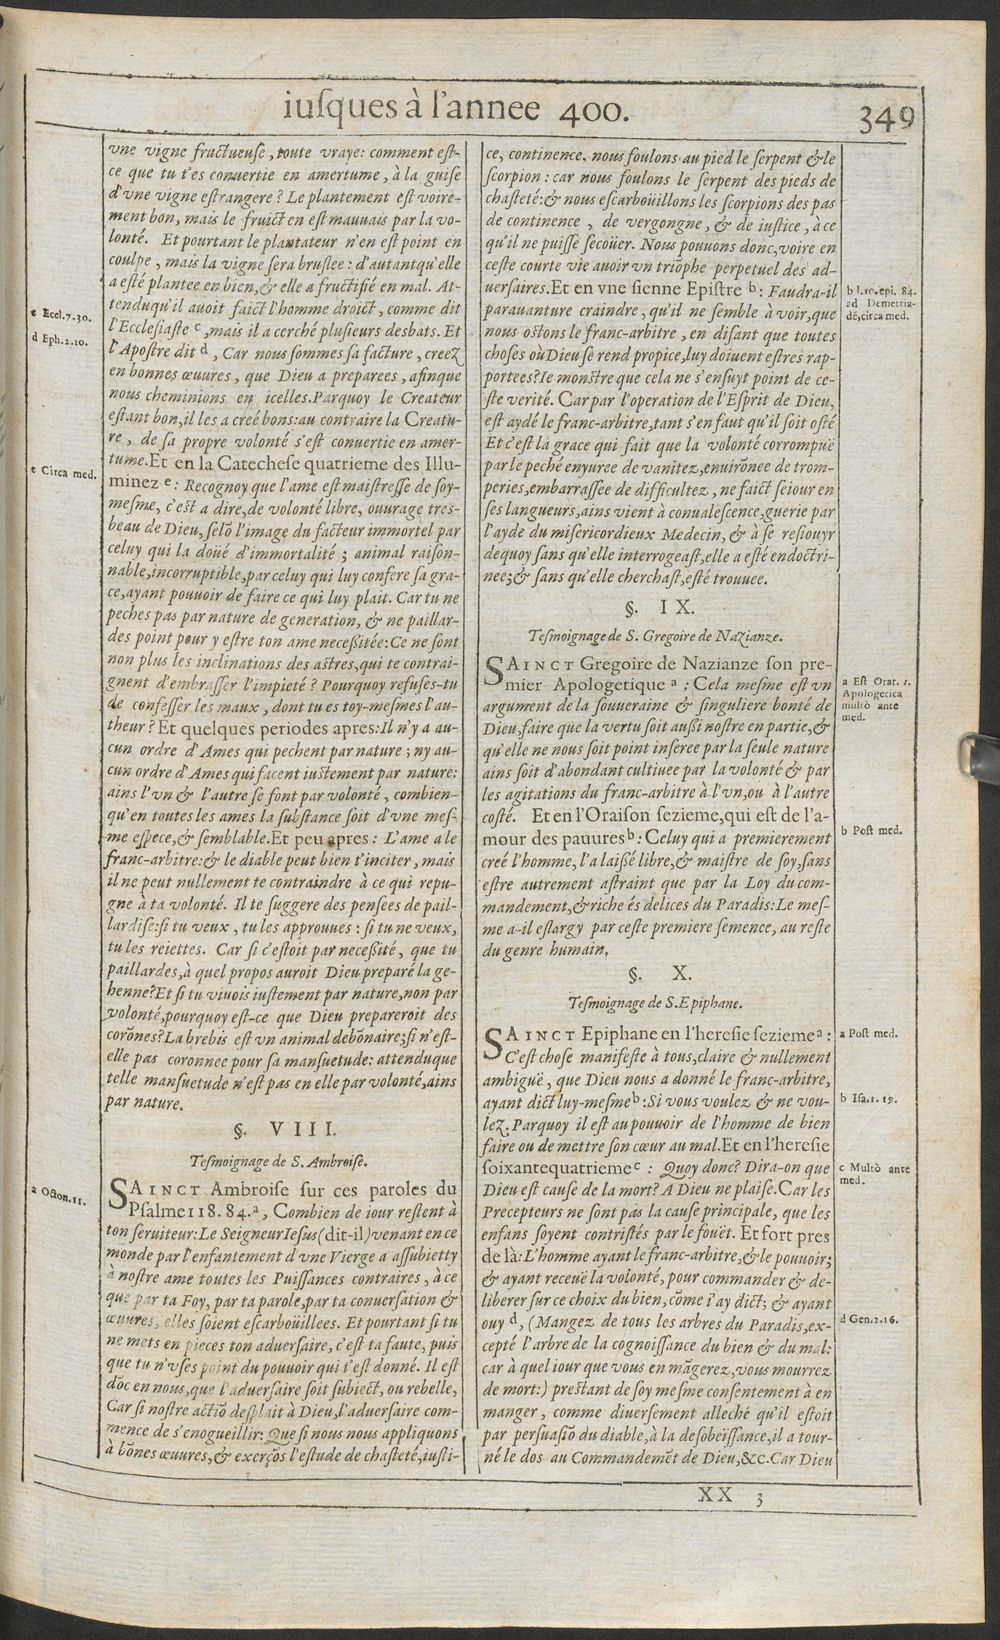 iuſques à l'annee 400.
349
vne vigne fructueuſe, toute vraye: comment eſt-
ce que tu t'es conuertie en amertume, à la guiſe
d'vne vigne eſtrangere? Le plantement eſt voire-
ment bon, mais le fruict en eſt mauuais par la vo-
lonté. Et pourtant le plantateur n'en eſt point en
coulpe, mais la vigne ſera bruſlee: d'autant qu'elle
a eſté plantee en bien, & elle a fructifié en mal. At-
tendu qu'il auoit faict l'homme droict, comme dit
l'Eccleſiaſte c, mais il a cerché pluſieurs desbats. Et
l'Apoſtre dit d, Car nous ſommes ſa facture, creez
en bonnes œuures, que Dieu a preparees, afin que
nous cheminions en icelles. Parquoy le Createur
eſtant bon, il les a creé bons: au contraire la Creatu-
re, de ſa propre volonté s'eſt conuertie en amer-
tume. Et en la Catecheſe quatrieme des Illu-
minez e: Recognoy que l'ame eſt maiſtreſſe de ſoy-
meſme, c'eſt a dire, de volonté libre, ouurage tres-
beau de Dieu, ſelõ l'image du facteur immortel par
celuy qui la doüé d'immortalité; animal raiſon-
nable, incorruptible, par celuy qui luy confere ſa gra-
ce, ayant pouuoir de faire ce qui luy plait. Car tu ne
peches pas par nature de generation, & ne paillar-
des point pour y eſtre ton ame neceſſitée: Ce ne ſont
non plus les inclinations des aſtres, qui te contrai-
gnent d'embraſſer l'impieté? Pourquoy refuſes-tu
de confeſſer les maux, dont tu es toy-meſmes l'au-
theur? Et quelques periodes apres: Il n'y a au-
cun ordre d'Ames qui pechent par nature; ny au-
cun ordre d'Ames qui facent iuſtement par nature:
ains l'vn & l'autre ſe font par volonté, combien-
qu'en toutes les ames la ſubſtance ſoit d'vne meſ-
me eſpece, & ſemblable. Et peu apres: L'ame a le
franc-arbitre: & le diable peut bien t'inciter, mais
il ne peut nullement te contraindre à ce qui repu-
gne à ta volonté. Il te ſuggere des penſees de pail-
lardiſe: ſi tu veux, tu les approuues: ſi tu ne veux,
tu les reiettes. Car ſi c'eſtoit par neceſſité, que tu
paillardes, à quel propos auroit Dieu preparé la ge-
henne? Et ſi tu viuois iuſtement par nature, non par
volonté, pourquoy eſt-ce que Dieu prepareroit des
corõnes? La brebis eſt vn animal debõnaire; ſi n'eſt-
elle pas coronnee pour ſa manſuetude: attendu que
telle manſuetude n'eſt pas en elle par volonté, ains
par nature.
§. VIII.
Teſmoignage de S. Ambroiſe.
SAINCT Ambroiſe ſur ces paroles du
Pſalme 118. 84. a, Combien de iour reſtent à
ton ſeruiteur: Le Seigneur Ieſus (dit-il) venant en ce
monde par l'enfantement d'vne Vierge a aſſubietty
à noſtre ame toutes les Puiſſances contraires, à ce
que par ta Foy, par ta parole, par ta conuerſation &
œuures, elles ſoient eſcarboüillees. Et pourtant ſi tu
ne mets en pieces ton aduerſaire, c'eſt ta faute, puis
que tu n'vſes point du pouuoir qui t'eſt donné. Il eſt
dõc en nous, que l'aduerſaire ſoit ſubiect, ou rebelle,
Car ſi noſtre actiõ deſplait à Dieu, l'aduerſaire com-
mence de s'enogueillir: Que ſi nous nous appliquons
à bõnes œuures, & exerçõs l'eſtude de chaſteté, iuſti-
c Eccl. 7. 30.
d Eph. 2. 10.
e Circa med.
a Octon. 11.
ce, continence, nous foulons au pied le ſerpent & le
ſcorpion: car nous foulons le ſerpent des pieds de
chaſteté: & nous eſcarboüillons les ſcorpions des pas
de continence, de vergongne, & de iuſtice, à ce
qu'il ne puiſſe ſecoüer. Nous pouuons donc, voire en
ceſte courte vie auoir vn triõphe perpetuel des ad-
uerſaires. Et en vne ſienne Epiſtre b: Faudra-il
parauanture craindre, qu'il ne ſemble à voir, que
nous oſtons le franc-arbitre, en diſant que toutes
choſes où Dieu ſe rend propice, luy doiuent eſtres rap-
portees? Ie monſtre que cela ne s'enſuyt point de ce-
ſte verité. Car par l'operation de l'Eſprit de Dieu,
eſt aydé le franc-arbitre, tant s'en faut qu'il ſoit oſté
Et c'eſt la grace qui fait que la volonté corrompuë
par le peché enyuree de vanitez, enuirõnee de trom-
peries, embarraſſee de difficultez, ne faict ſeiour en
ſes langueurs, ains vient à conualeſcence, guerie par
l'ayde du miſericordieux Medecin, & à ſe reſiouyr
dequoy ſans qu'elle interrogeaſt, elle a eſté endoctri-
nee; & ſans qu'elle cherchaſt, eſté trouuee.
§. IX.
Teſmoignage de S. Gregoire de Nazianze.
SAINCT Gregoire de Nazianze ſon pre-
mier Apologetique a: Cela meſme eſt vn
argument de la ſouueraine & ſinguliere bonté de
Dieu, faire que la vertu ſoit auſſi noſtre en partie, &
qu'elle ne nous ſoit point inſeree par la ſeule nature
ains ſoit d'abondant cultiuee par la volonté & par
les agitations du franc-arbitre à l'vn, ou à l'autre
coſté. Et en l'Oraiſon ſezieme, qui eſt de l'a-
mour des pauures b: Celuy qui a premierement
creé l'homme, l'a laiſſé libre, & maiſtre de ſoy, ſans
eſtre autrement aſtraint que par la Loy du com-
mandement, & riche és delices du Paradis: Le meſ-
me a-il eſlargy par ceſte premiere ſemence, au reſte
du genre humain.
§. X.
Teſmoignage de S. Epiphane.
SAINCT Epiphane en l'hereſie ſezieme a:
C'eſt choſe manifeſte à tous, claire & nullement
ambiguë, que Dieu nous a donné le franc-arbitre,
ayant dict luy-meſme b: Si vous voulez & ne vou-
lez. Parquoy il eſt au pouuoir de l'homme de bien
faire ou de mettre ſon cœur au mal. Et en l'hereſie
ſoixantequatrieme c: Quoy donc? Dira-on que
Dieu eſt cauſe de la mort? A Dieu ne plaiſe. Car les
Precepteurs ne ſont pas la cauſe principale, que les
enfans ſoyent contriſtés par le foüet. Et fort pres
de là: L'homme ayant le franc-arbitre, & le pouuoir;
& ayant receuë la volonté, pour commander & de-
liberer ſur ce choix du bien, cõme i'ay dict; & ayant
ouy d, (Mangez de tous les arbres du Paradis, ex-
cepté l'arbre de la cognoiſſance du bien & du mal:
car à quel iour que vous en mãgerez, vous mourrez
de mort:) preſtant de ſoy meſme conſentement à en
manger, comme diuerſement alleché qu'il eſtoit
par perſuaſiõ du diable, à la deſobeïſſance, il a tour-
né le dos au Commandemẽt de Dieu, &c. Car Dieu
b l. 10. epi. 84.
ad Demetria-
dẽ, circa med.
a Eſt Orat. 1.
Apologetica
multò ante
med.
b Poſt med.
a Poſt med.
b Iſa. 1. 19.
c Multò ante
med.
d Gen. 2. 16.
XX 3